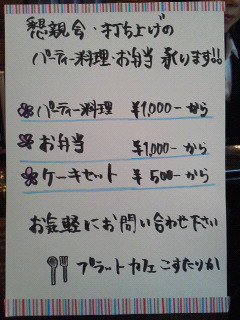 懇親会・打ち上げの
パーティー料理・お弁当 承ります!!
パーティー料理 ¥1,000-から
お弁当 ¥1,000-から
ケーキセット ¥500-から
お気軽にお問い合わせ下さい
プラットカフェこすたりか